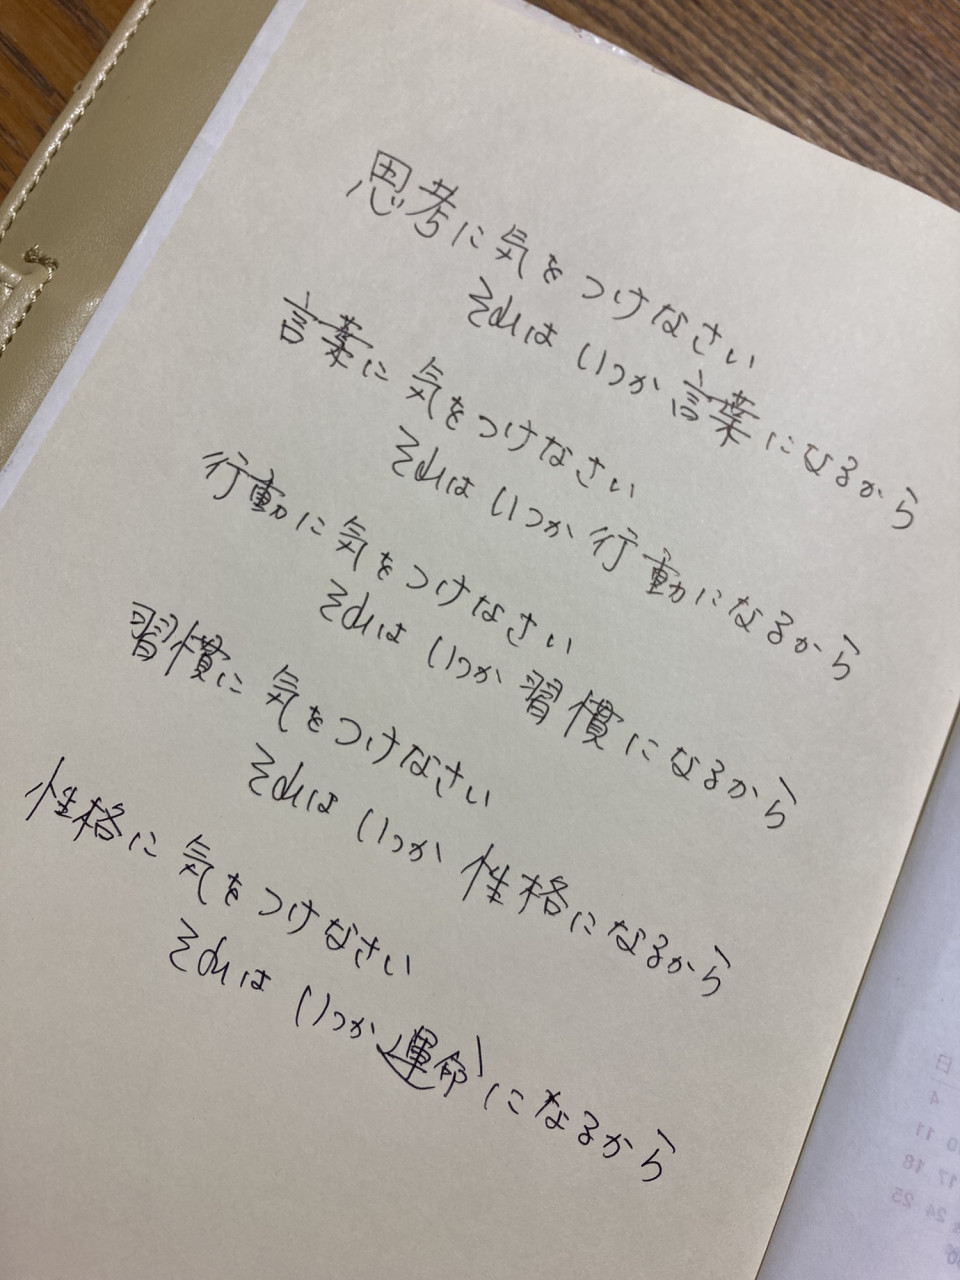 思考に気をつけなさい
それはいつか言葉になるから
言葉に気をつけなさい
それはいつか行動になるから
行動に気をつけなさい
それはいつか習慣になるから
習慣に気をつけなさい
それはいつか性格になるから
性格に気をつけなさい
それはいつか運命になるから
日
4
11
17 18
24 25